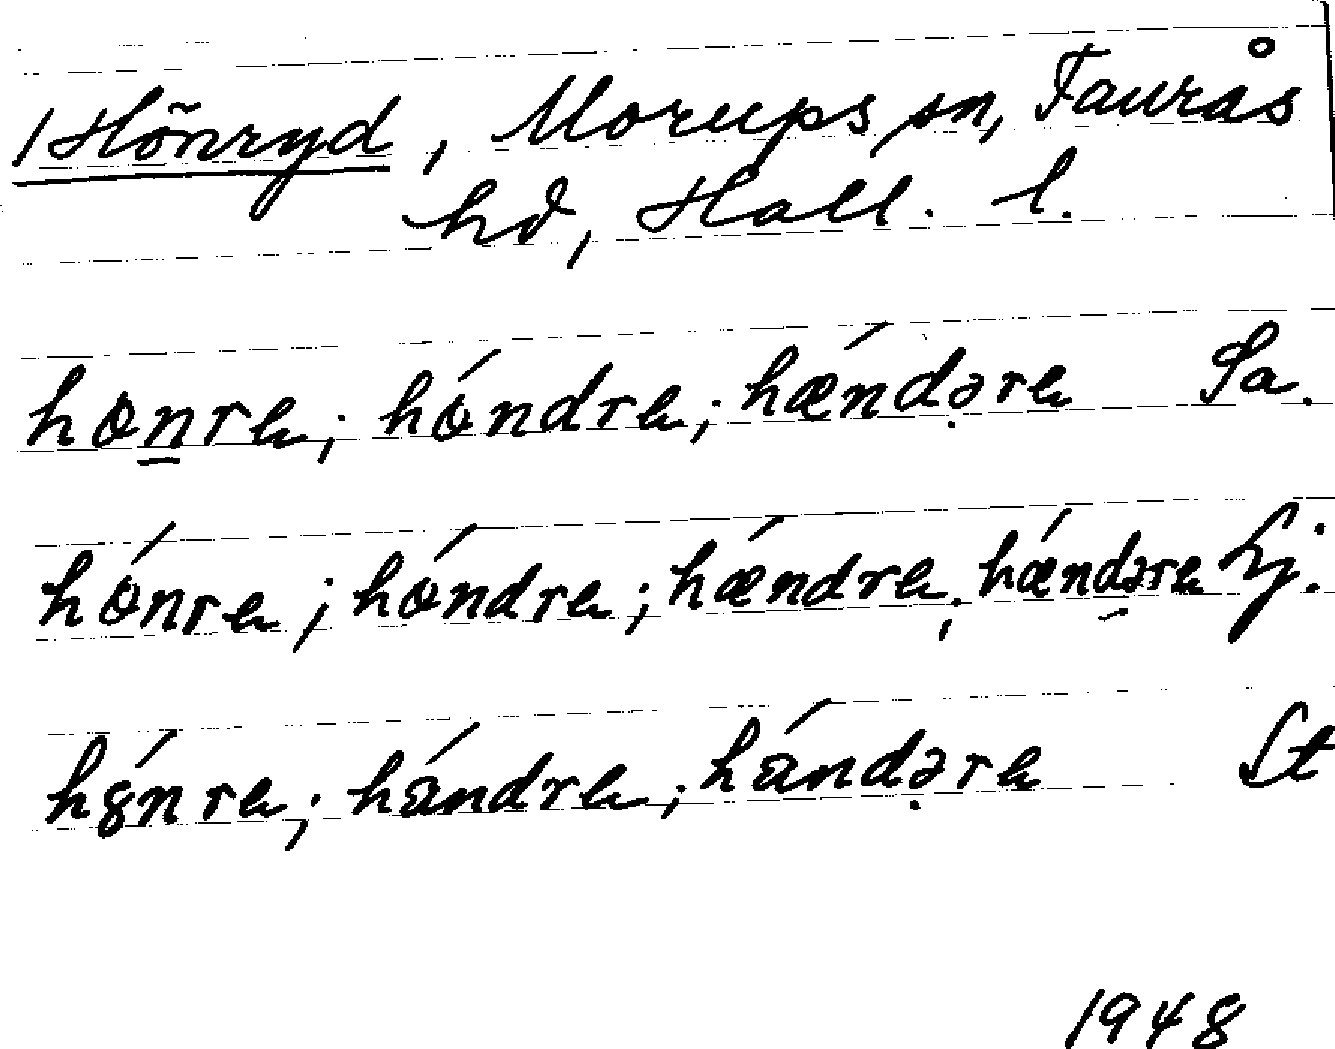 Hönryd, Morups sn, Faurås
hd, Hall. l.
hønre; hǿndre; hændəre Sa.
hǿnre; hǿndre; hǽndre, hǽndəre Lj.
hǿnre; hándre; hándəre St
1948